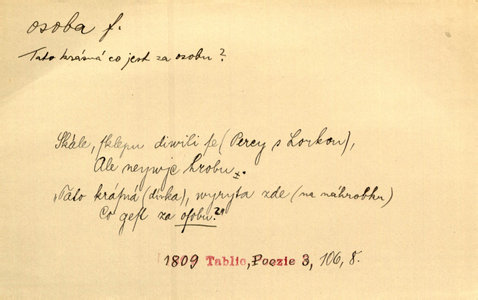 osoba f.
Tato krásná co jest za osobu?
Skále, sklepu diwili se (Percy s Lorkou),
Ale neywjc hrobu.
"Táto krásná (dívka), wyryta zde (na náhrobku)
Co gest za osobu?"
1809 Tablic, Poezie 3, 106, 8.